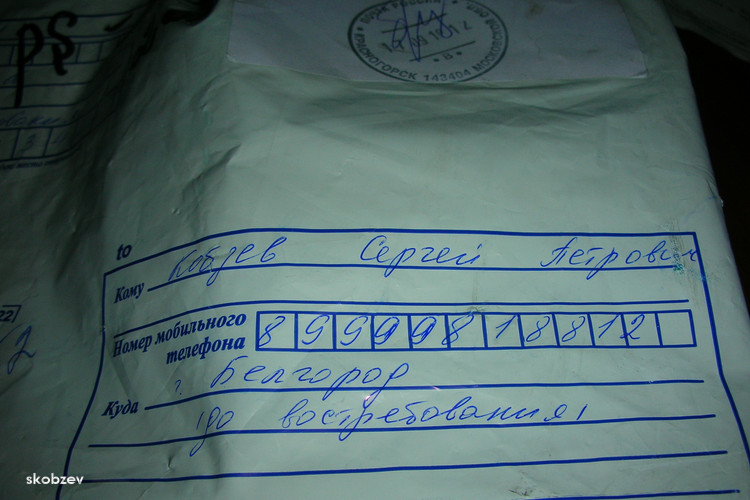 КРАСНОГОРСК 143404 МОСКОВСКОЙ ОБЛ
to
Кому Кобзев Сергей Петрович
Номер мобильного телефона 8 9 9 9 9 8 1 8 8 1 2
Куда г. Белгород
(до востребования)
skobzev